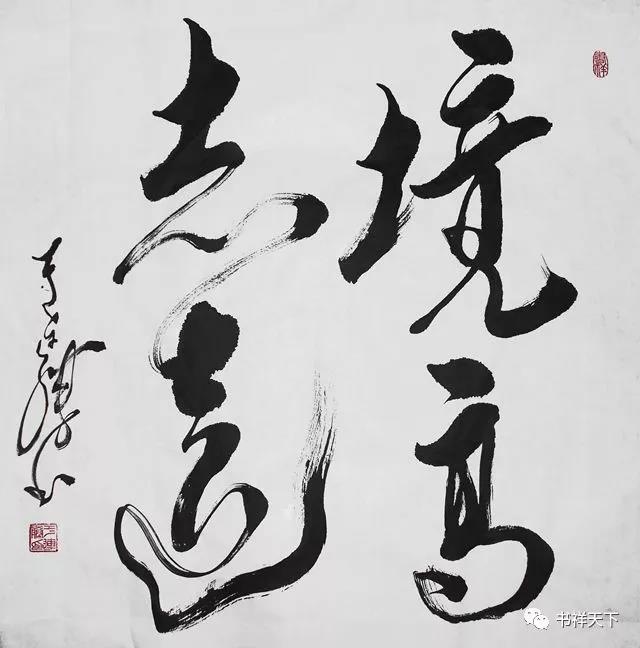 境高
志遠
书祥天下